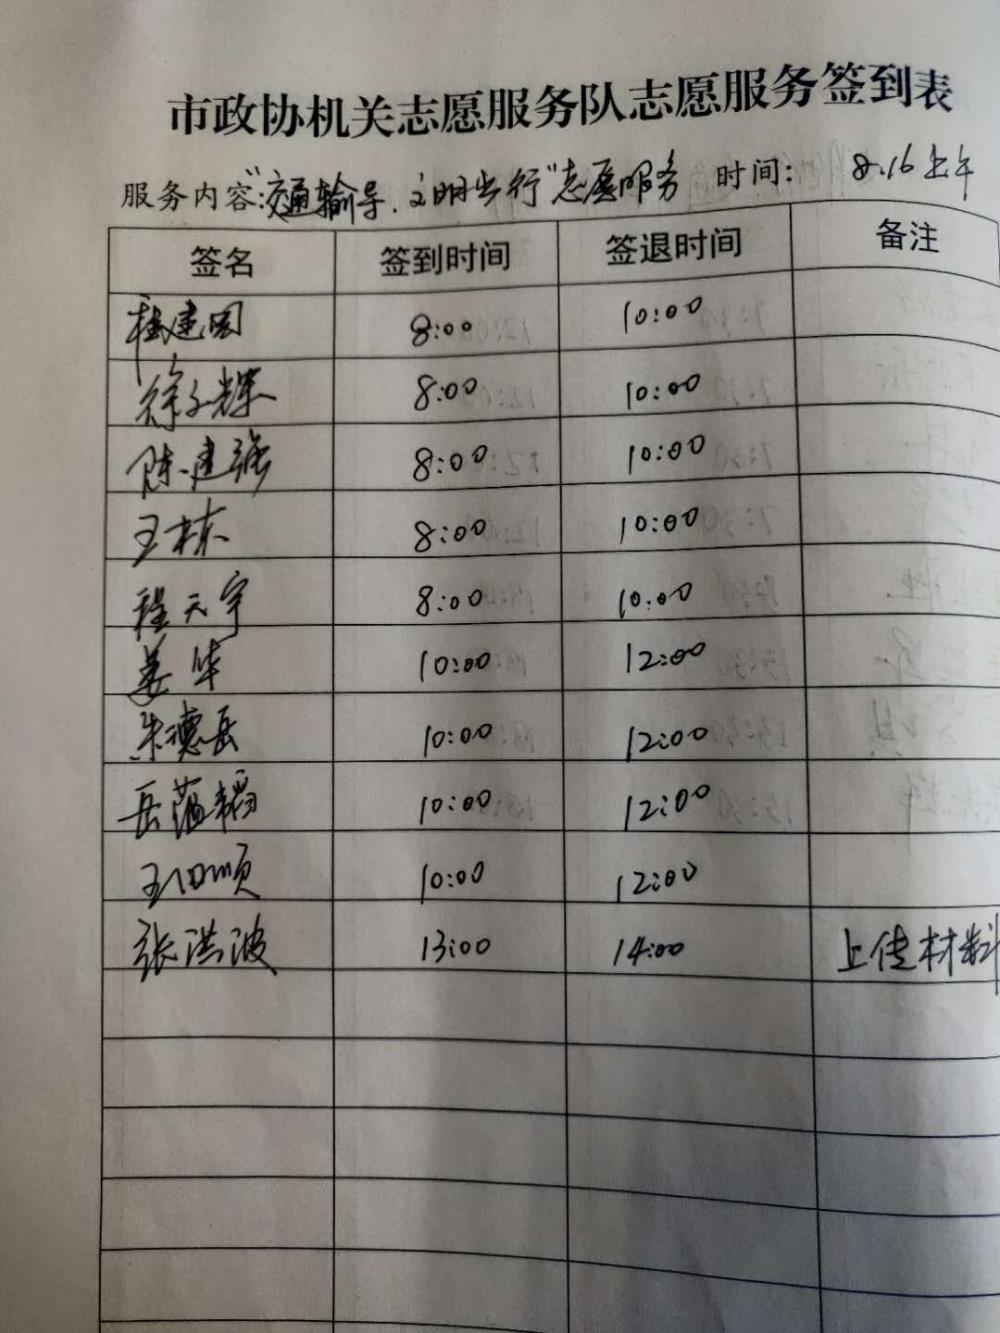 市政协机关志愿服务队志愿服务签到表
服务内容:"交通输导.文明出行"志愿服务 时间: 8.16上午
签名 签到时间 签退时间 备注
8:00 10:00
徐子辉 8:00 10:00
陈建强 8:00 10:00
王栋 8:00 10:00
程天宇 8:00 10:00
姜华 10:00 12:00
朱德岳 10:00 12:00
岳蕴韬 10:00 12:00
王汝顺 10:00 12:00
张洪波 13:00 14:00 上传材料